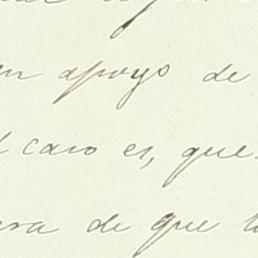 en apoyo de
l caso es, que
era de que l